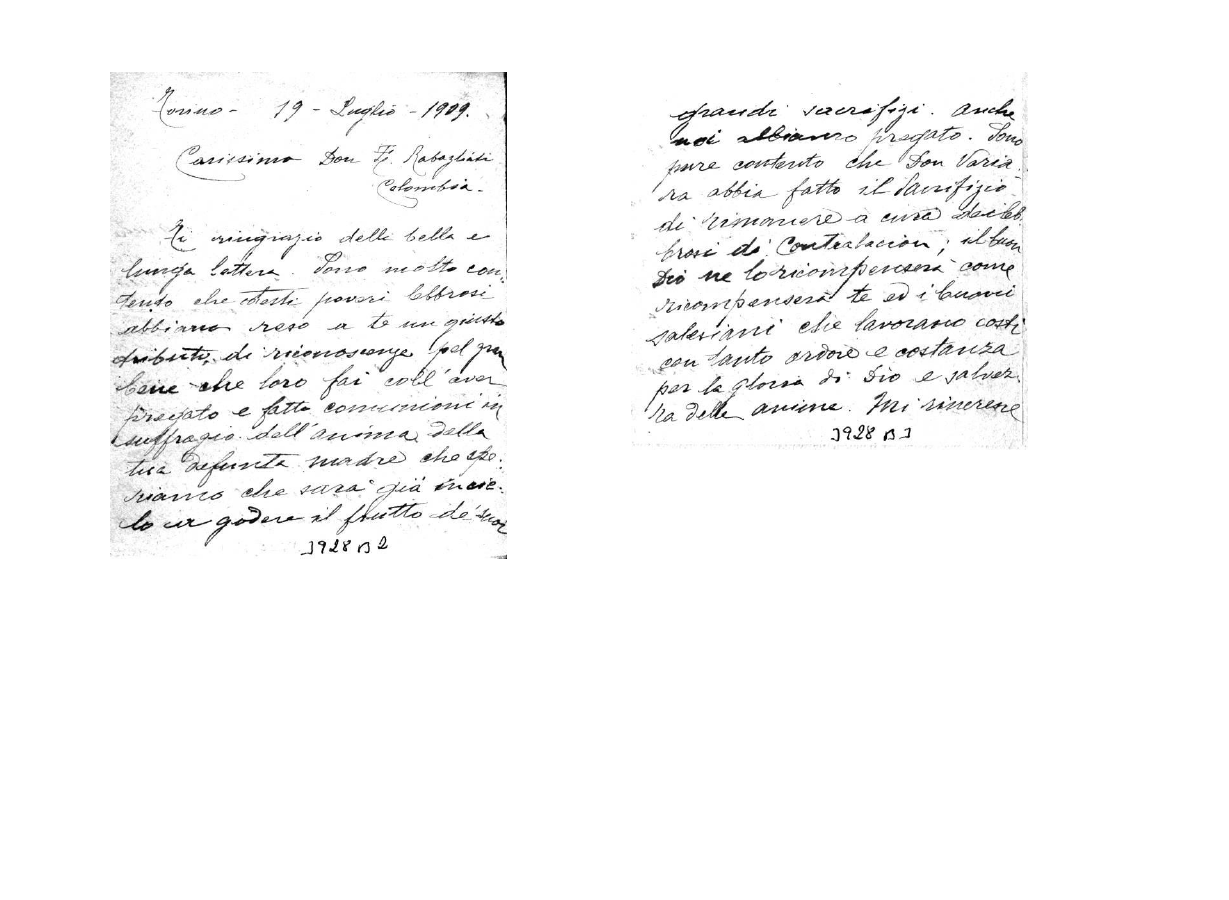 Torino - 19 - Luglio - 1909.
Carissimo Don Rabagliati
Colombia -
Ti ringrazio della bella e
lunga lettera. Sono molto con-
tento che cotesti poveri lebbrosi
abbiano reso a te un giusto
tributo di riconoscenza pel gran
bene che loro fai coll'aver
pregato e fatto comunioni in
suffragio dell'anima della
tua defunta madre che spe-
riamo che sarà già in cie-
lo a godere il frutto de' suoi
]928 B 2
grandi sacrifizi. Anche
noi abbiamo pregato. Sono
pure contento che Don Varia-
ra abbia fatto il sacrifizio
di rimanere a cura dei leb-
brosi di Contratacion; il buon
Dio ne lo ricompenserà come
ricompenserà te ed i buoni
salesiani che lavorano costì
con tanto ardore e costanza
per la gloria di Dio e salvez-
za delle anime. Mi rincresce
]928 B 3